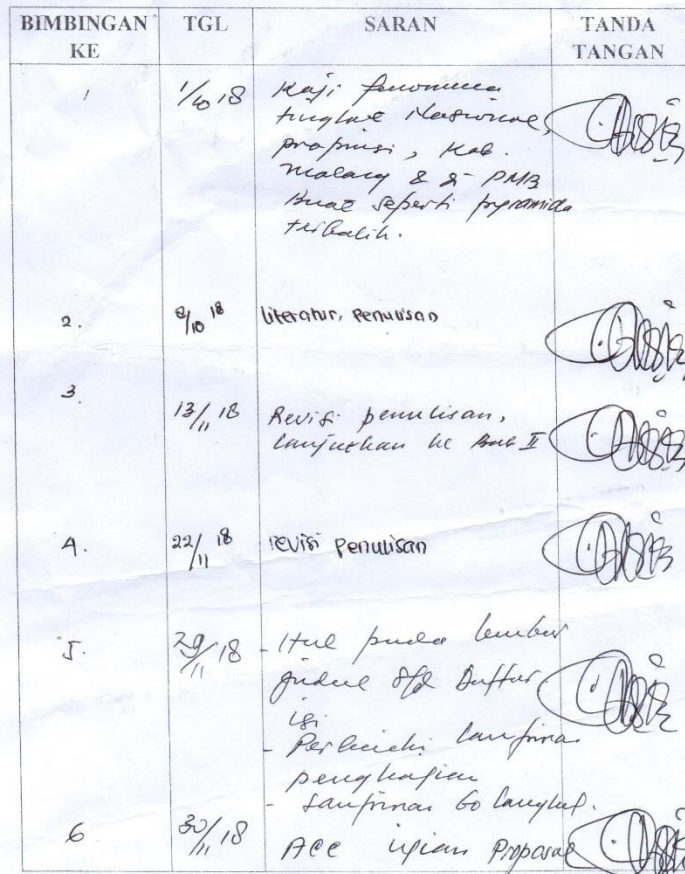 BIMBINGAN KE TGL SARAN TANDA TANGAN
1 1/10 18 Kaji fenomena
tingkat Nasional,
propinsi, Kab.
Malang & di PMB
Buat seperti pyramida
terbalik.
2. 8/10 18 literatur, Penulisan
3. 13/11 18 Revisi penulisan,
lanjutkan ke Bab II
4. 22/11 18 revisi Penulisan
5. 29/11 18 - Hal pada lembar
judul s/d Daftar
isi
- Perbaiki lampiran
pengkajian
- Lampiran lengkap.
6 30/11 18 Acc ujian Proposal